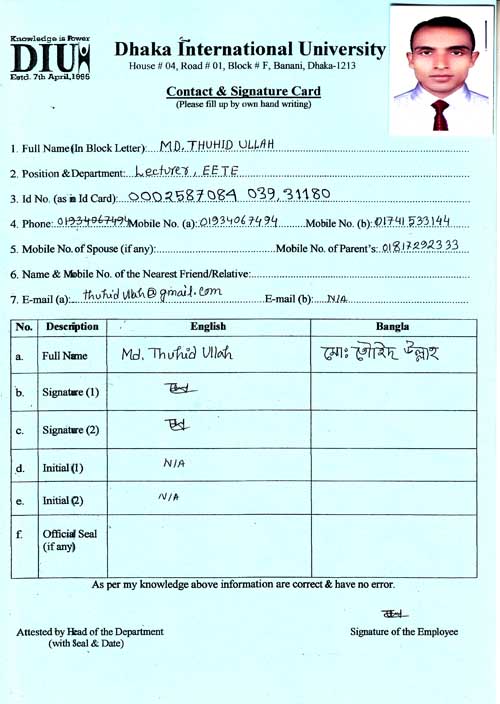 Knowledge is Power
DIU
Estd. 7th April,1995
Dhaka International University
House # 04, Road # 01, Block # F, Banani, Dhaka-1213
Contact & Signature Card
(Please fill up by own hand writing)
1. Full Name(In Block Letter): MD. THUHID ULLAH
2. Position & Department: Lecturer, EETE
3. Id No. (as in Id Card): 0002587084 039, 31180
4. Phone: 01934067494 Mobile No. (a): 01934067494 Mobile No. (b): 01741533144
5. Mobile No. of Spouse (if any): Mobile No. of Parent's: 01817292333
6. Name & Mobile No. of the Nearest Friend/Relative:
7. E-mail (a): thuhid ullah@gmail.com E-mail (b): N/A
No. Description English Bangla
a. Full Name Md. Thuhid Ullah মোঃ তৌহিদ উল্লাহ
b. Signature (1)
c. Signature (2)
d. Initial (1) N/A
e. Initial (2) N/A
f. Official Seal
(if any)
As per my knowledge above information are correct & have no error.
Attested by Head of the Department Signature of the Employee
(with Seal & Date)